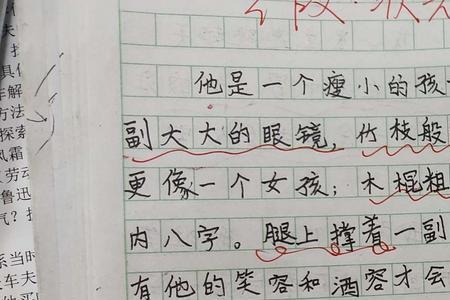 他是一个瘦小的孩
副大大的眼镜，竹枝般
更像一个女孩；木棍粗
内八字。腿上撑着一副
有他的笑容和酒容才会
夫
具
解
方法
探索
风霜
劳动
鲁迅
气？
系当时
车夫